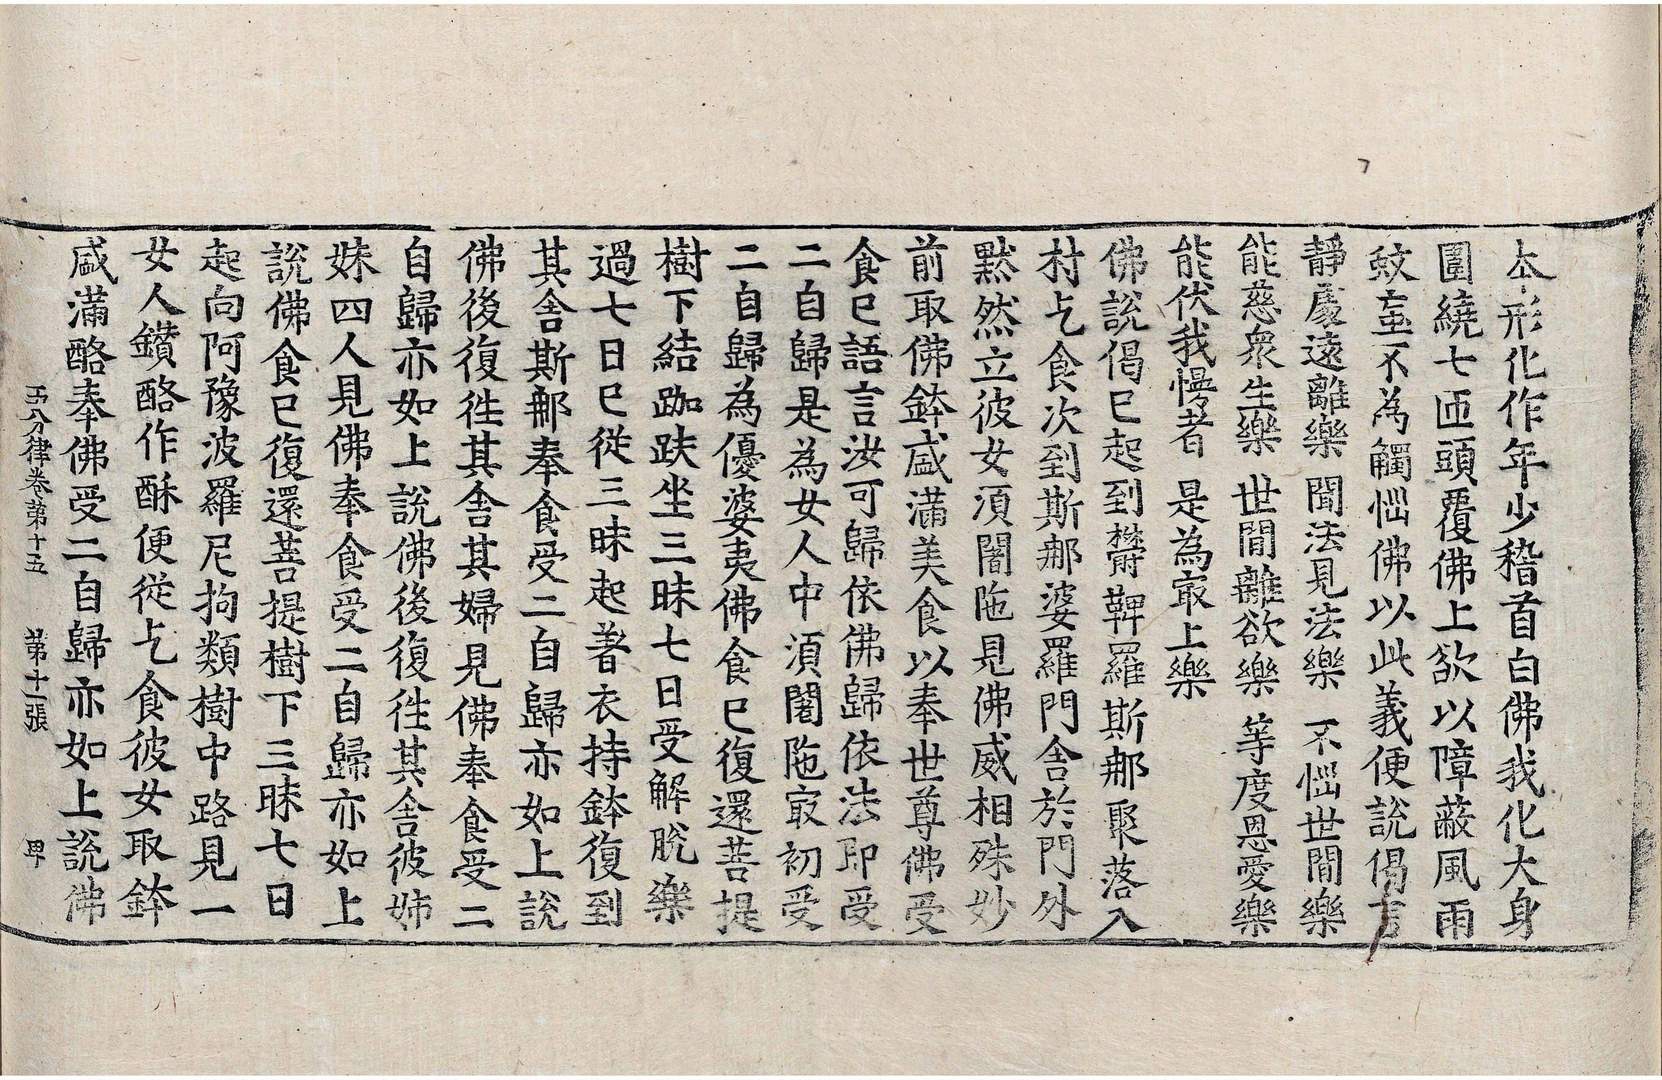 本形化作年少稽首白佛我化大身
圍繞七匝頭覆佛上欲以障蔽風雨
蚊䖟不為觸惱佛以此義便說偈言
靜處遠離樂 聞法見法樂 不惱世間樂
能慈衆生樂 世間離欲樂 等度恩愛樂
能伏我慢者 是為㝡上樂
佛說偈已起到欝鞞羅斯那聚落入
村乞食次到斯那婆羅門舍於門外
默然立彼女須闍陁見佛威相殊妙
前取佛鉢盛滿美食以奉世尊佛受
食已語言汝可歸依佛歸依法即受
二自歸是為女人中須闍陁㝡初受
二自歸為優婆夷佛食已復還菩提
樹下結跏趺坐三昧七日受解脫樂
過七日已從三昧起著衣持鉢復到
其舍斯那奉食受二自歸亦如上說
佛後復往其舍其婦見佛奉食受二
自歸亦如上說佛後復往其舍彼姊
妹四人見佛奉食受二自歸亦如上
說佛食已復還菩提樹下三昧七日
起向阿豫波羅尼拘類樹中路見一
女人鑽酪作酥便從乞食彼女取鉢
盛滿酪奉佛受二自歸亦如上說佛
五分律卷第十五 第十一張